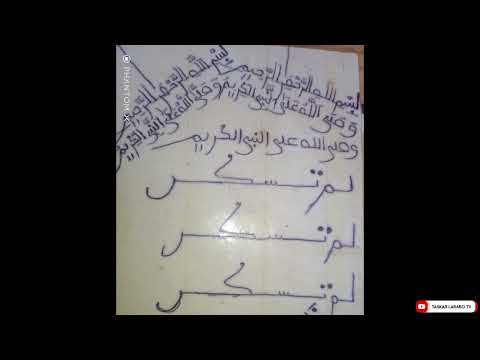 بسم الله الرحمن الرحيم
وصلى الله على النبي الكريم
بسم الله الرحمن الرحيم
وصلى الله على النبي الكريم
وصلى الله على النبي الكريم
لم تسكر
لم تسكر
لم تسكر
PHANTOM X
TASKAR LABARAI TV